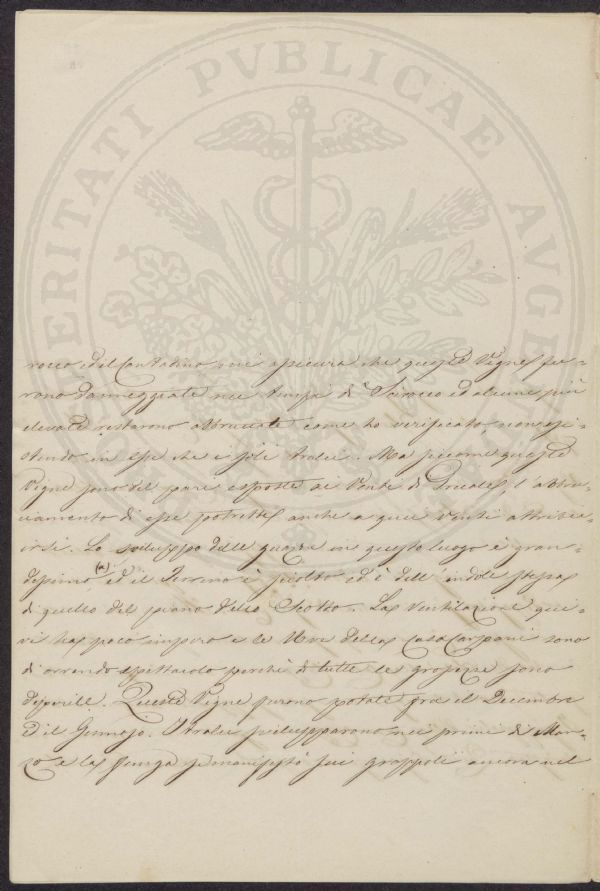 PROSPERITATI PVBLICAE AVGENDAE
rocco, ed il Contadino mi assicura che queste Vigne fu-
rono danneggiate nei tempi di Scirocco ed alcune più
elevate restarono abbruciate come ho verificato non esi-
stendo in esse che i soli tralci. Ma siccome queste
Vigne sono del pari esposte ai Venti di Grecale, l'abbru-
ciamento di esse potrebbe anche a quei venti attribu-
irsi. Lo sviluppo delle in questo luogo è gran-
dissimo (a) ed il Terreno è sciolto ed è dell'indole stessa
di quello del piano dello Scotto. La Ventilazione qui-
vi ha poco impero e le Uve della Casa Carpani sono
di orrendo spettacolo perchè di tutte le grossezze sono
Queste Vigne furono potate fra il Decembre
ed il Gennajo. I tralci svilupparono nei primi di Mar-
zo e la si manifestò sui grappoli ancora nel